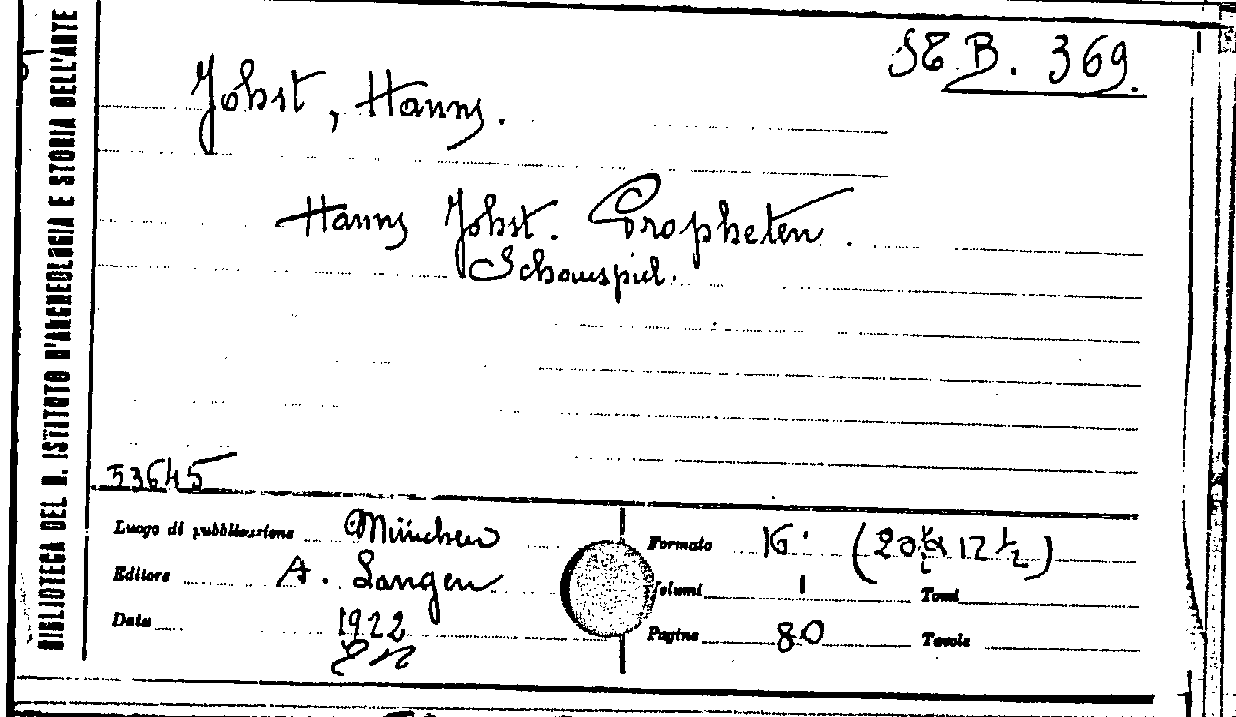 BIBLIOTECA DEL R. ISTITUTO D'ARCHEOLOGIA E STORIA DELL'ARTE
B. 369.
Johst, Hanns.
Hanns Johst. Propheten.
Schauspiel.
53645
Luogo di pubblicazione München
Editore A. Langen
Data 1922
Formato 16° (20 ½ x 12 ½)
Volumi 1 Tomi
Pagine 80 Tavole